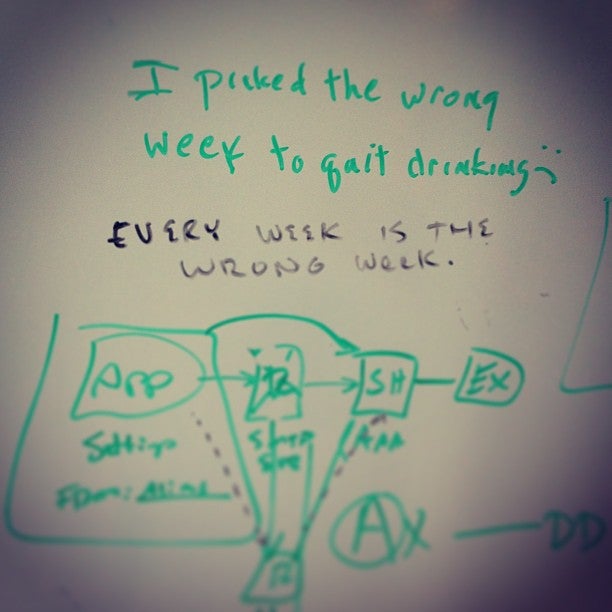 I picked the wrong
week to quit drinking :(
EVERY WEEK IS THE
WRONG WEEK.
APP SH EX
Settings APP
From:
AX DD